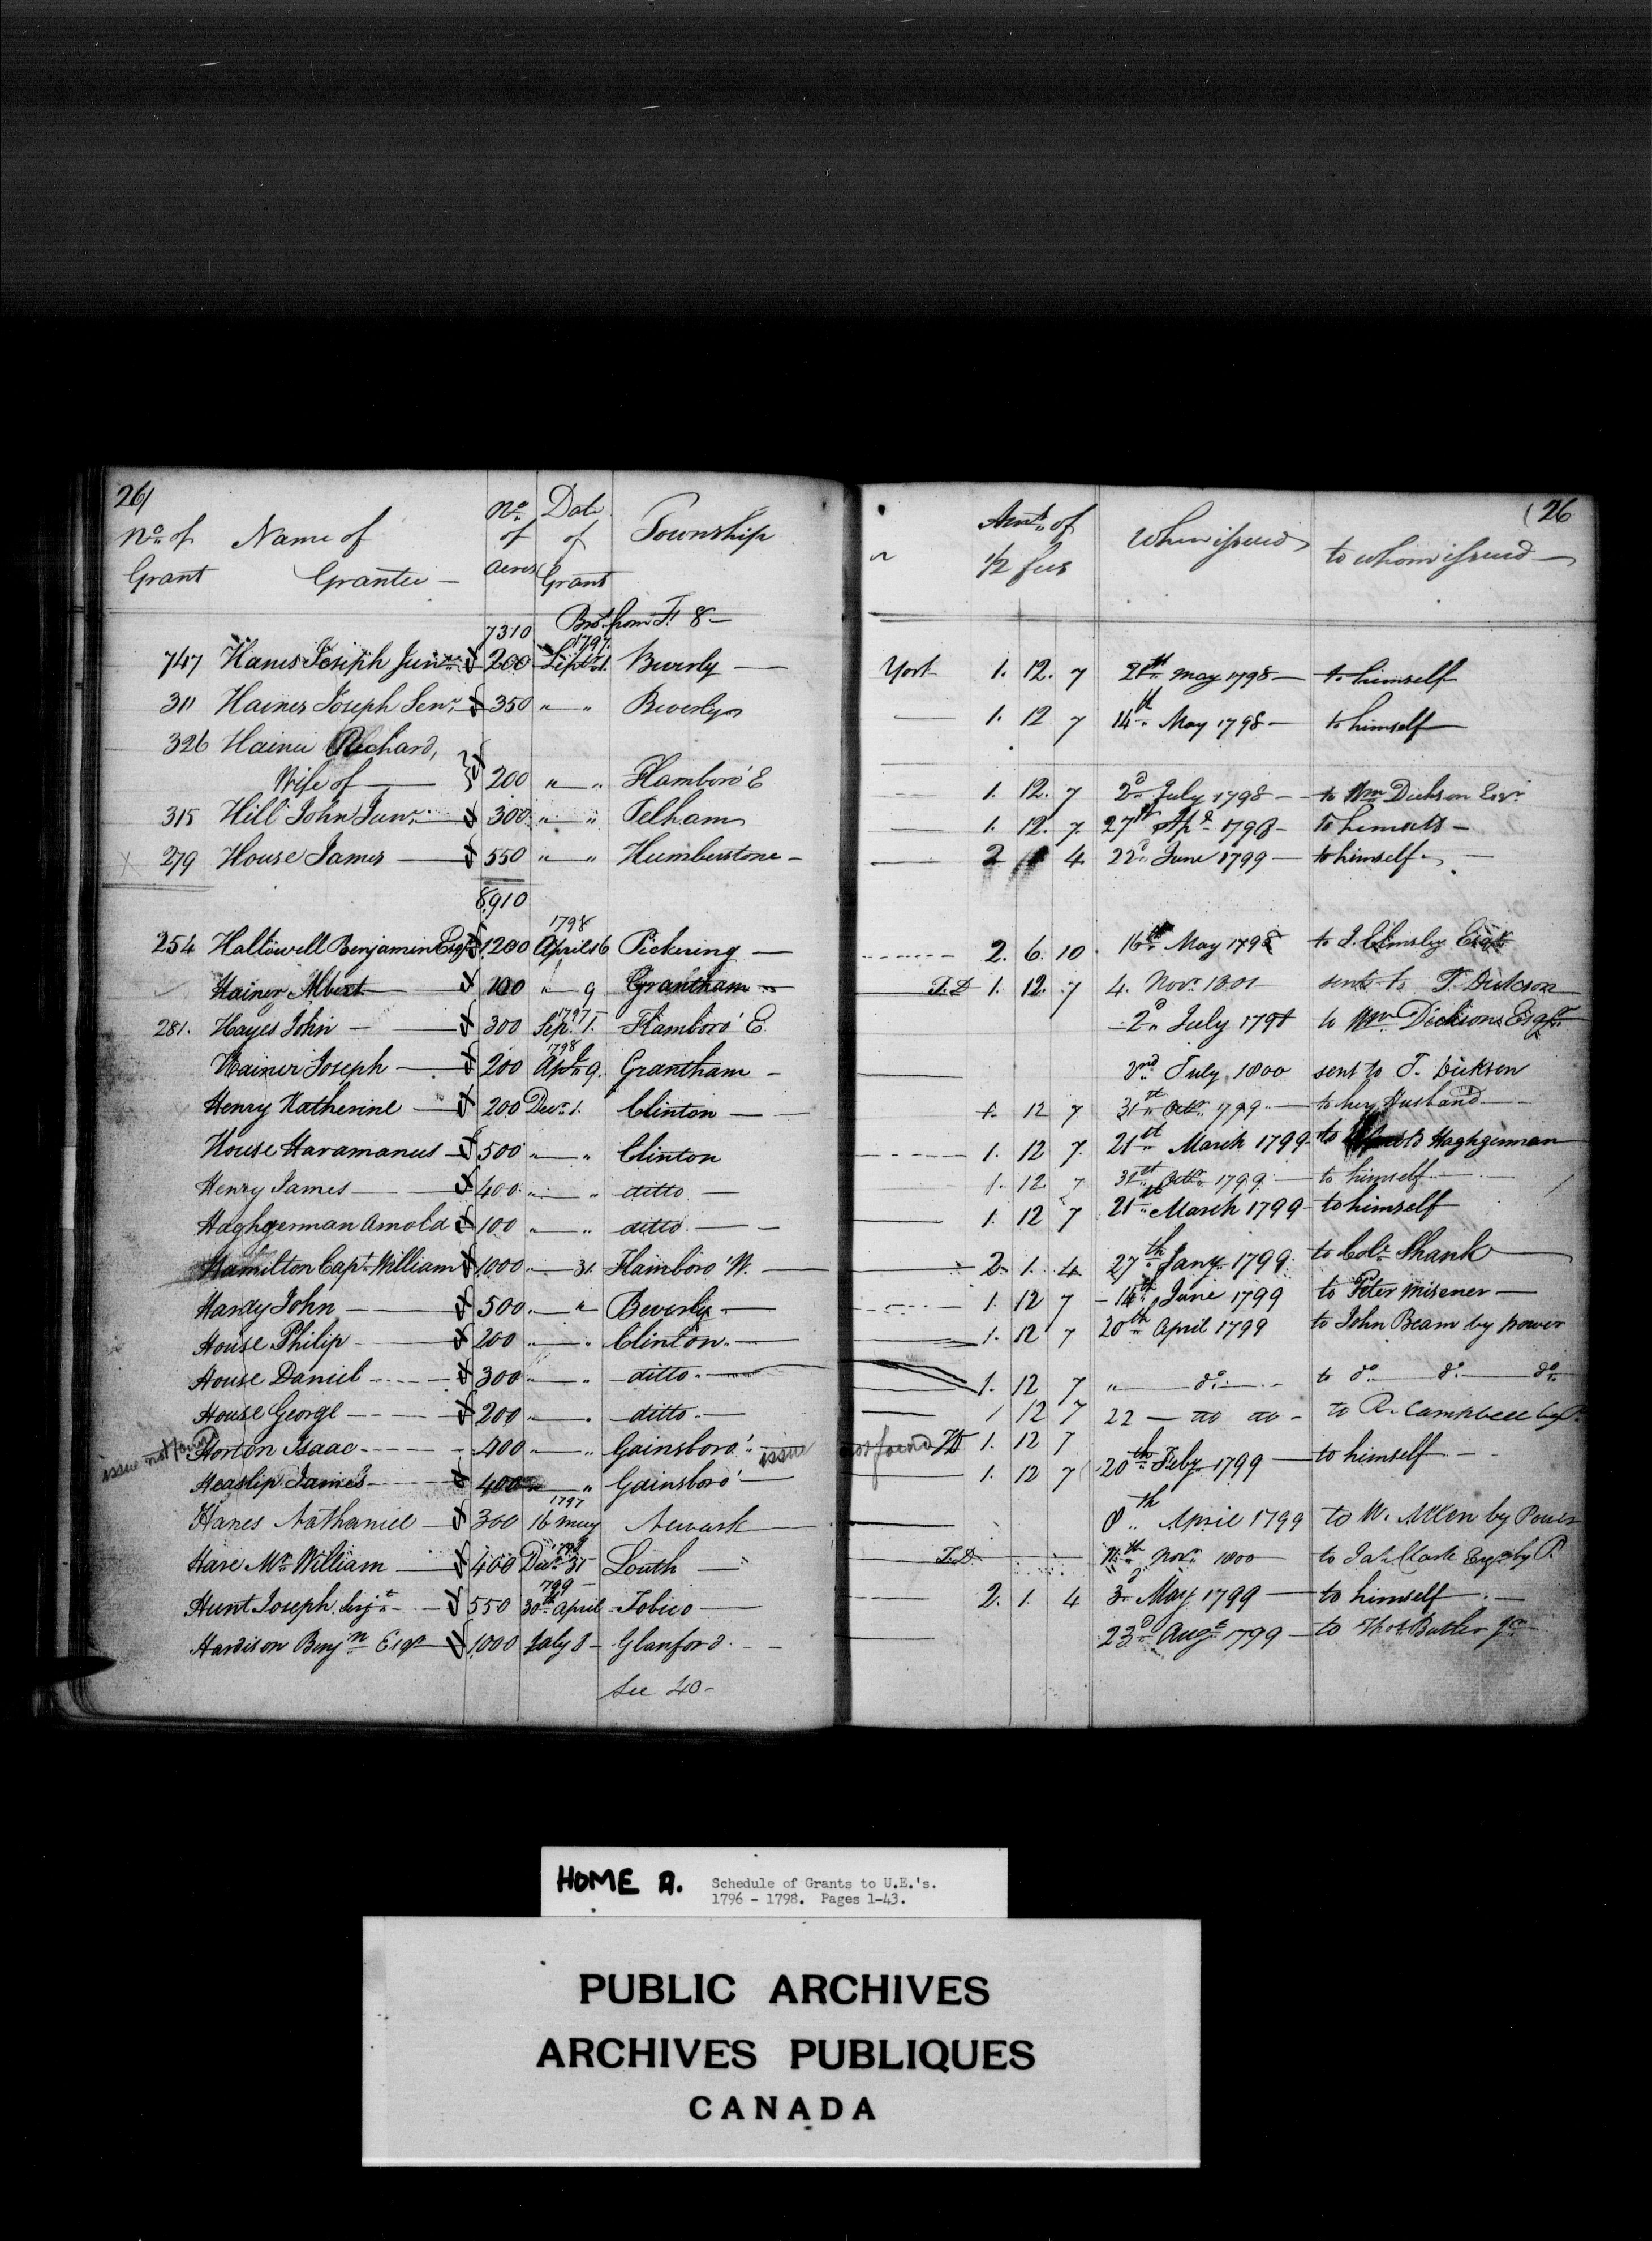 26)
(26
No. of Grant Name of Grantee — No. of acres Date of Grant Township Amt. of 1/2 fees When issued to whom issued —
7310 Brot. from F. 8 —
747 Hanes Joseph Junr. 200 1797 Septr. 1. Beverly — York 1. 12. 7 May 1798 — to himself
311 Haines Joseph Senr. 350 " — " Beverly — 1. 12 7 14th May 1798 — to himself
326 Hainer Richard,
Wife of — 200 " — " Flamboro' E — 1. 12. 7 2d. July 1798 — to Wm. Dickson Esqr.
315 Hill John Junr. 300 " " Pelham — 1. 12. 7 27th Apl. 1798 — to himself —
279 House James — 550 " " Humberstone — 2 4 22d. June 1799 — to himself —
8,910
254 Hallowell Benjamin Esqr. 1200 1798 April 16 Pickering — 2. 6. 10. 16th May 1798 to J. Elmsley Esqr.
Hainer Albert — 100 " 9 Grantham — T.D 1. 12. 7 4. Novr. 1801 sent to T. Dickson
281. Hayes John — 300 1797 Sepr. 1. Flamboro' E. — 2d. July 1798 to Wm. Dickson Esqr.
Hainer Joseph — 200 1798 Apl. 9. Grantham — July 1800 sent to T. Dickson
Henry Katherine — 200 Decr. 1. Clinton — 1. 12 7 31st Octr. 1799 — to her Husband —
House Haramanus — 500 " — " Clinton — 1. 12 7. 21st March 1799 — to Arnold Haghgerman
Henry James — 400 " — " ditto — 1. 12. 7 31st Octr. 1799 — to himself —
Haghgerman Arnold 100 " — " ditto — 1. 12 7 21st March 1799 — to himself
Hamilton Capt. William 1000 — 31 Flamboro' W. — 2. 1. 4 27th Jany. 1799 to Colr. Shank —
Hardy John — 500 " — " Beverly — 1. 12 7 — 14th June 1799 to Peter Misener —
House Philip — 200 " — " Clinton — 1. 12 7 20th April 1799 to John Beam by power
House Daniel — 300 " — " ditto — 1. 12 7 " — do. — to do. do. do.
House George — 200 " — " ditto — 1 12 7 22 — do do — to R. Campbell by P.
issue not found Horton Isaac — 400 " — " Gainsboro' issue not found TD 1. 12 7
Heaslip James — 400 — " Gainsboro' — 1. 12 7 20th Feby. 1799 — to himself —
Hanes Nathaniel — 300 1797 16 May Newark — 8th April 1799 to W. Allen by Power
Hare Mr. William — 400 Decr. 31 Louth — T.D. — Novr. 1800 — to Jas. Clark Esqr. by P.
Hunt Joseph Serjt. — 550 1799 30th April Tobico — 2. 1. 4 3d. May 1799 — to himself —
Hardison Benjn. Esqr 1000 July 8 — Glanford — 23d. Augt. 1799 — to Thos. Butler
See 40 —
HOME D. Schedule of Grants to U.E.'s.
1796 - 1798. Pages 1-43.
PUBLIC ARCHIVES
ARCHIVES PUBLIQUES
CANADA